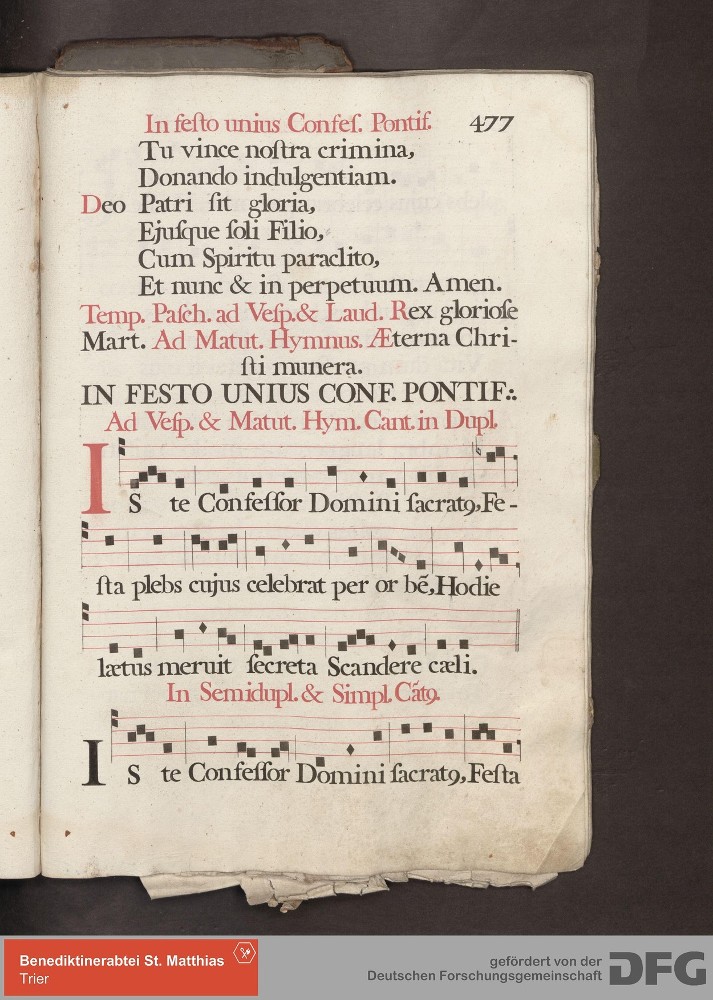 In feſto unius Confeſ. Pontif. 477
Tu vince noſtra crimina,
Donando indulgentiam.
Deo Patri ſit gloria,
Ejuſque ſoli Filio,
Cum Spiritu paraclito,
Et nunc & in perpetuum. Amen.
Temp. Paſch. ad Veſp. & Laud. Rex glorioſe
Mart. Ad Matut. Hymnus. Æterna Chri-
ſti munera.
IN FESTO UNIUS CONF. PONTIF:.
Ad Veſp. & Matut. Hym. Cant. in Dupl.
IS te Confeſſor Domini ſacratꝯ, Fe-
ſta plebs cujus celebrat per or bē, Hodie
lætus meruit ſecreta Scandere cæli.
In Semidupl. & Simpl. Cātꝯ.
IS te Confeſſor Domini ſacratꝯ, Feſta
Benediktinerabtei St. Matthias
Trier
gefördert von der
Deutschen Forschungsgemeinschaft
DFG